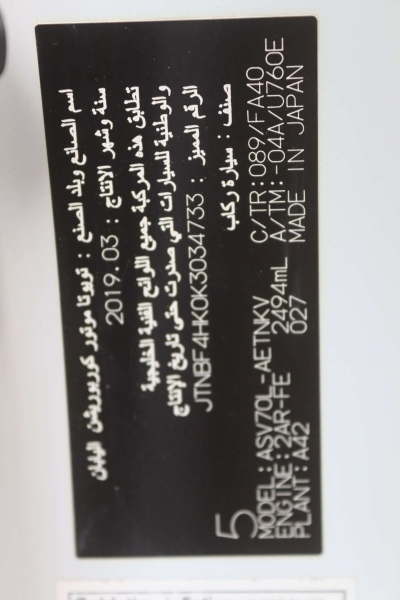 اسم الصانع وبلد الصنع : تويوتا موتور كوربوريشن اليابان
سنة وشهر الإنتاج : 2019.03
تطابق هذه المركبة جميع اللوائح الفنية الخليجية
والوطنية للسيارات التي صدرت حتى تاريخ الإنتاج
الرقم المميز : JTNBF4HK0K3034733
صنف : سيارة ركاب
5
MODEL:ASV70L-AETNKV C/TR:089/FA40
ENGINE:2AR-FE 2494mL A/TM:-04A/U760E
PLANT:A42 027 MADE IN JAPAN